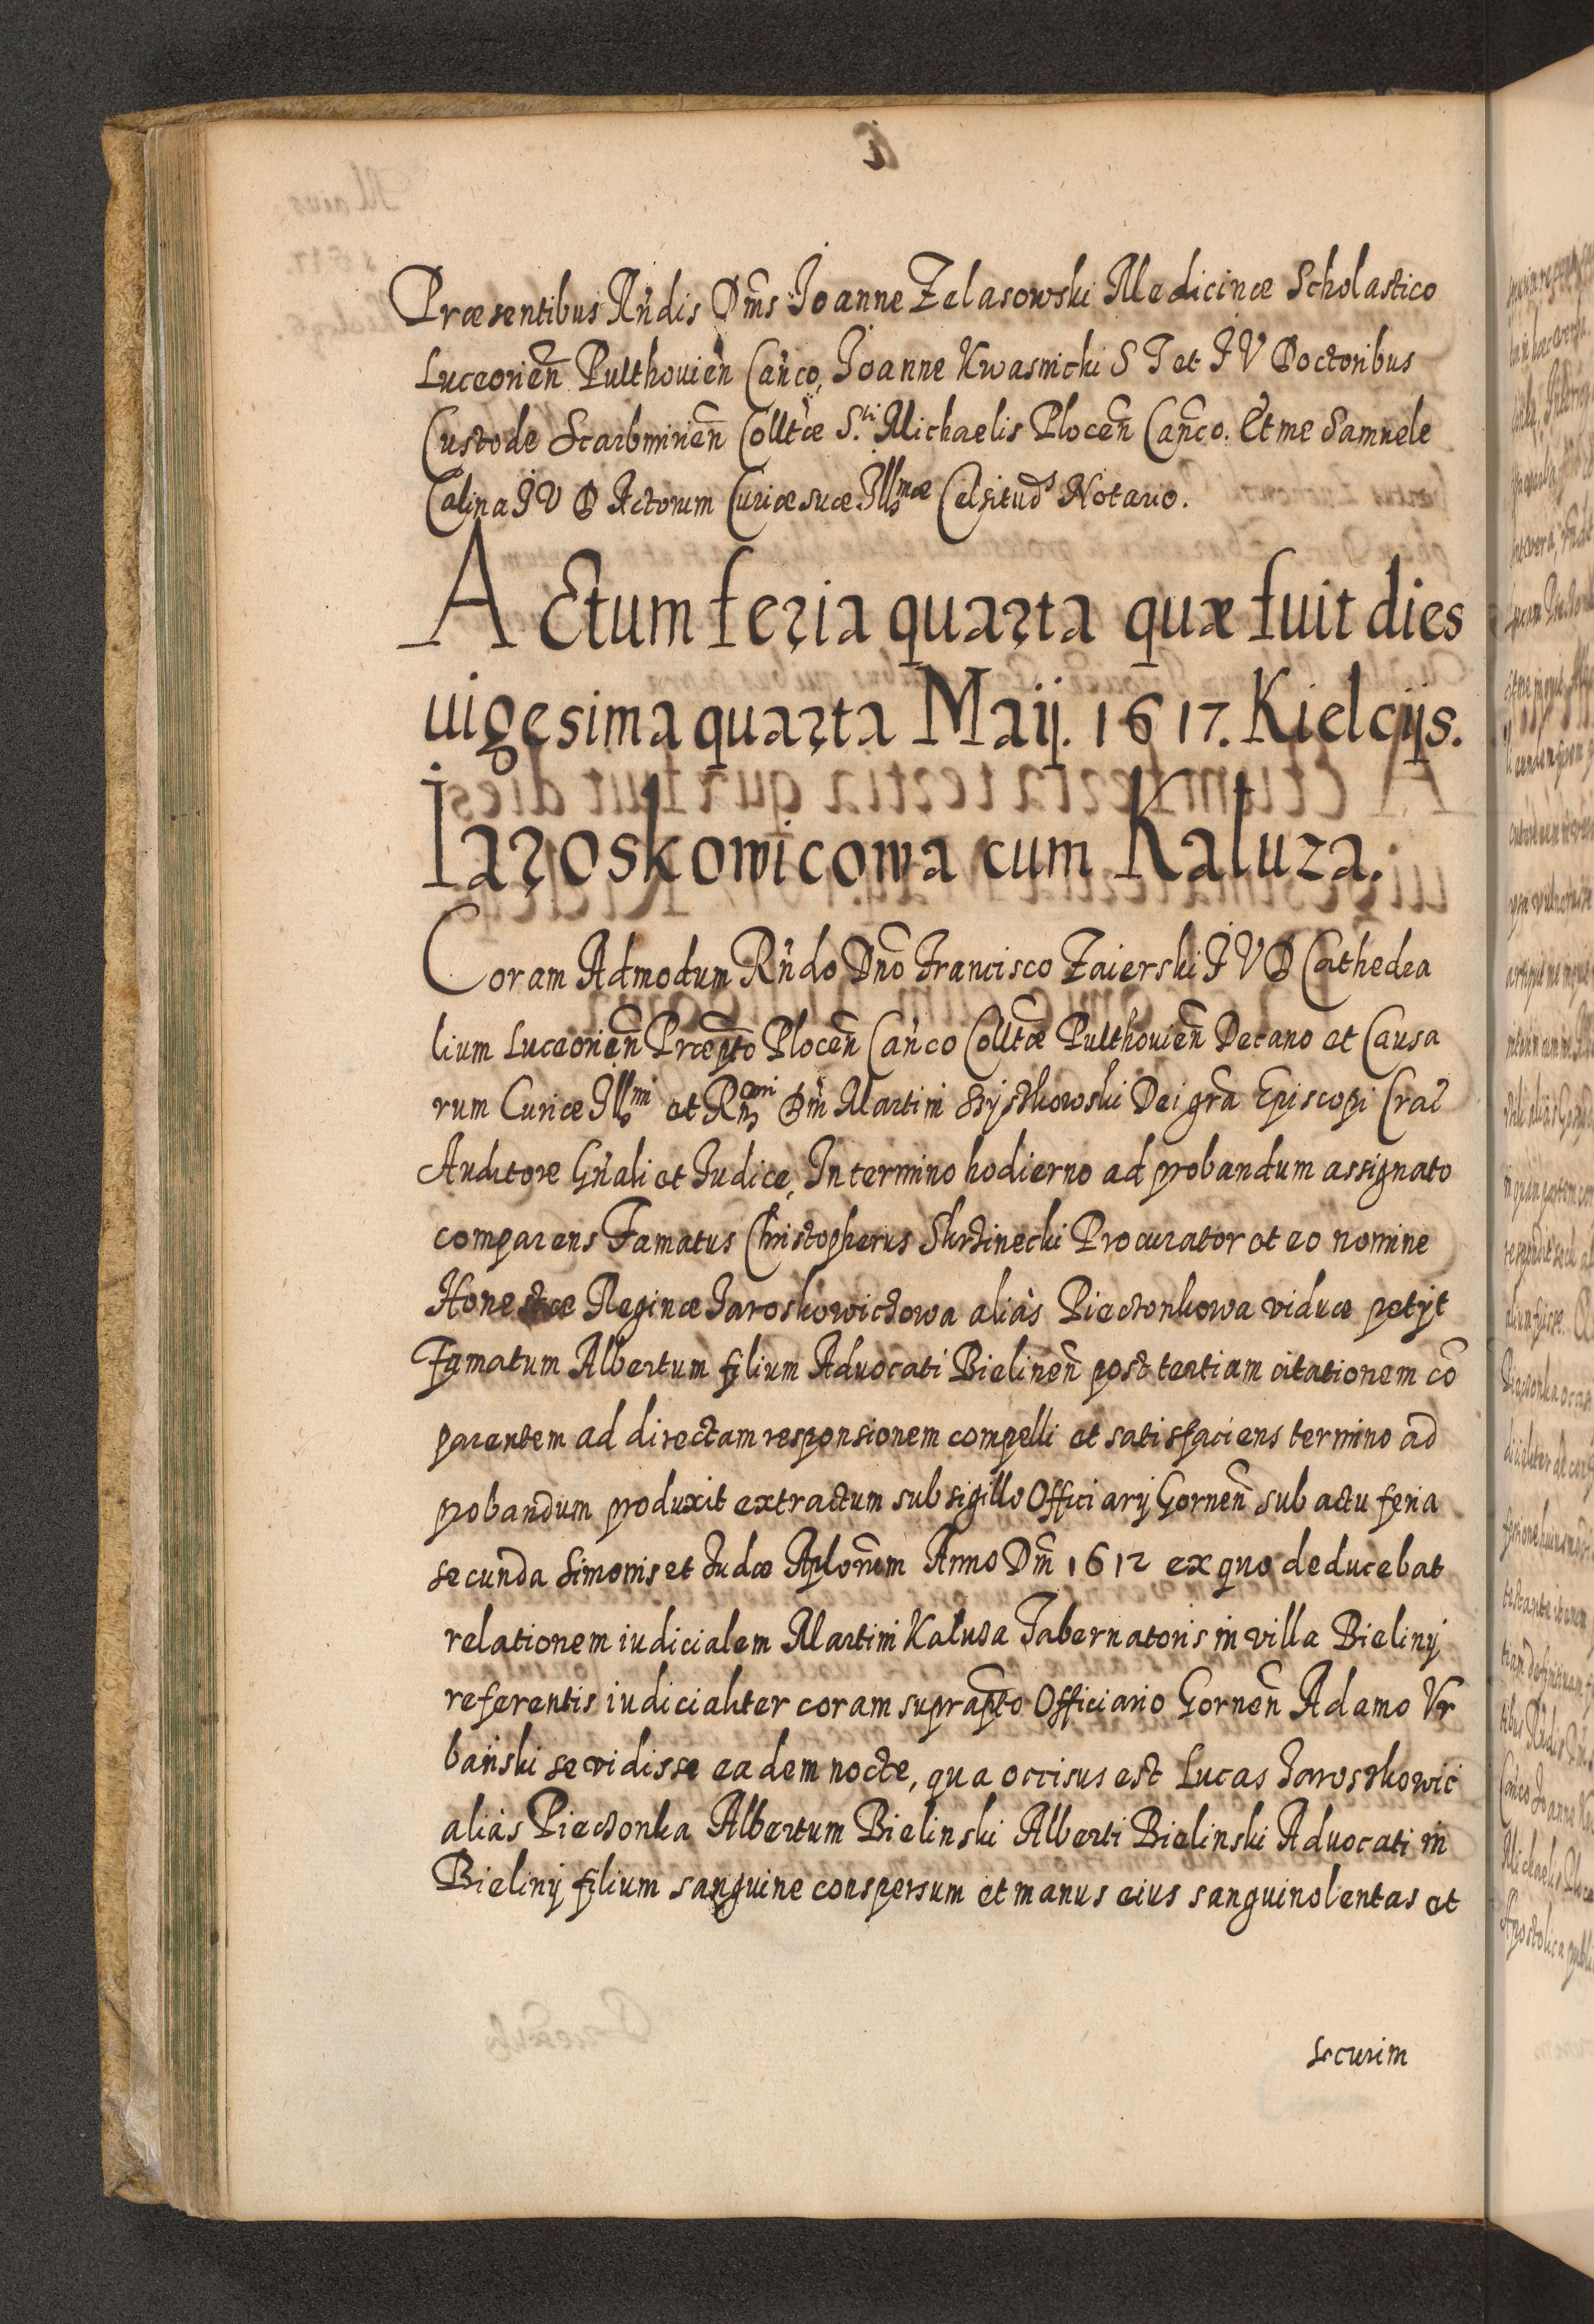 Præsentibus Rńdis Dm̃s Joanne Zelasowski Medicinæ Scholastico
Luceorień Pulthouień Cańco, Joanne Kwasnicki S T et J V Doctoribus
Custode Scarbmirień Colltæ S.ti Michaelis Ploceñ Cañco. Et me Samuele
Calina J V D Actorum Curiæ suæ Illmæ Celsitudˢ Notario.
Actum feria quarta quæ fuit dies
uigesima quarta Maij. 1617. Kielcijs.
Iaroskowicowa cum Kałuza.
Coram Admodum Rńdo Dńo Francisco Zaierski J V D Cathedra
lium Luceorień Præpto Ploceñ Cańco Colltæ Pulthouień Decano et Causa
rum Curiæ Illmi et Rmi Dm̃ Martini Szyszkowski Dei gra Episcopi Crac̃
Auditore Gńali et Judice, In termino hodierno ad probandum assignato
comparens Famatus Christopherus Skrzinecki Procurator et eo nomine
Honestæ Reginæ Jaroskowiczowa aliàs Pieczonkowa viduæ petijt
Famatum Albertum filium Aduocati Bielineñ post tertiam citationem co̅
parentem ad directam responsionem compelli et satisfaciens termino ad
probandum produxit extractum sub sigillo Officiarij Gorneñ sub actu feria
secunda Simonis et Judæ Aplorum Anno Dm̃ 1612 ex quo deducebat
relationem iudicialem Martini Kałuza Tabernatoris in villa Bieliny
referentis iudicialiter coram suprapto Officiario Gorneñ Adamo Vr
bański se vidisse eadem nocte, qua occisus est Lucas Jaroszkowic
aliàs Pieczonka Albertum Bielinski Alberti Bielinski Aduocati in
Bieliny filium sanguine conspersum et manus eius sanguinolentas et
securim